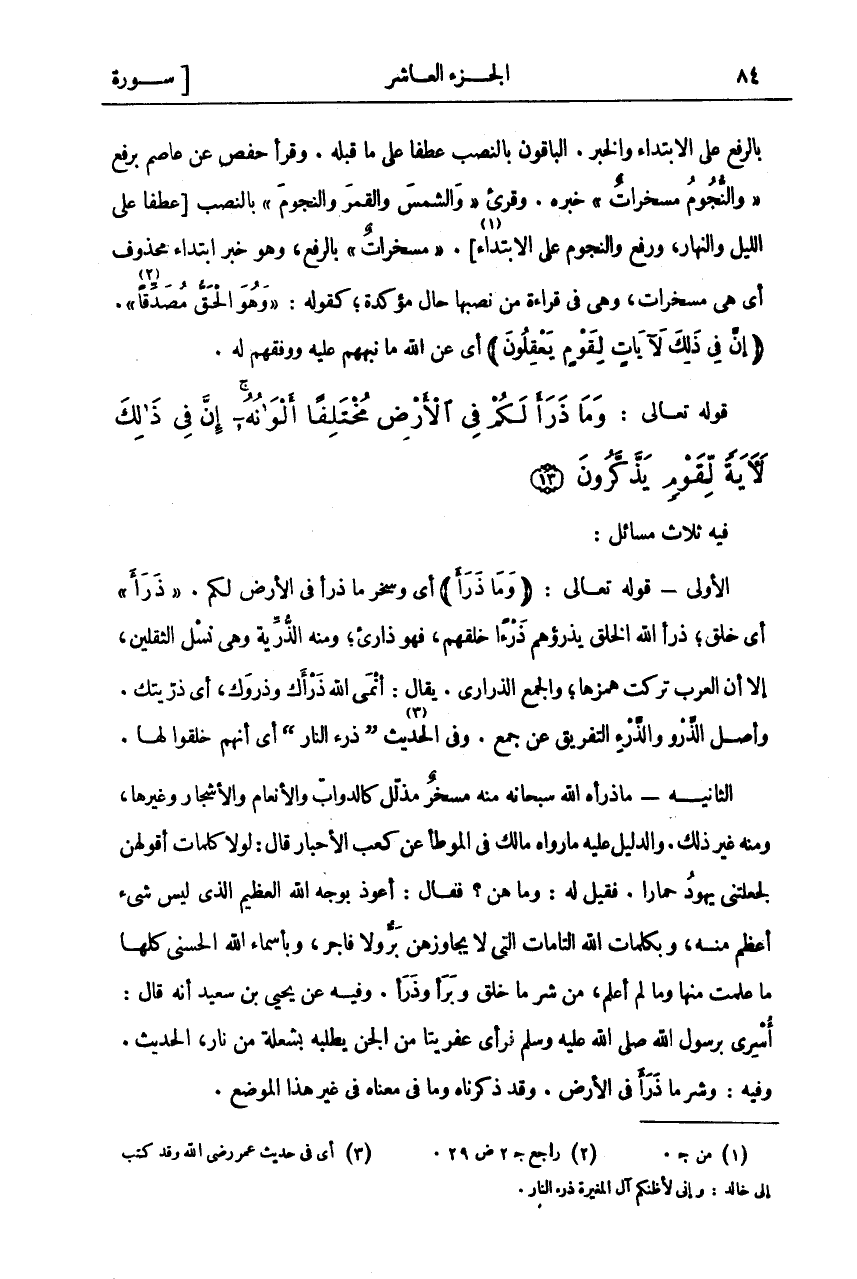 ٨٤ الجزء العاشر [ سورة
بالرفع على الابتداء والخبر . الباقون بالنصب عطفا على ما قبله . وقرأ حفص عن عاصم برفع
« والنُّجُومُ مسخراتٌ » خبره . وقرئ « والشمسَ والقمرَ والنجومَ » بالنصب [عطفا على
الليل والنهار، ورفع والنجوم على الابتداء](١) . « مسخراتٌ » بالرفع، وهو خبر ابتداء محذوف
أى هى مسخرات، وهى فى قراءة من نصبها حال مؤكدة؛ كقوله : «وَهُوَ الْحَقُّ مُصَدِّقًا»(٢).
﴿إنَّ فِي ذَلِكَ لَآيَاتٍ لِقَوْمٍ يَعْقِلُونَ﴾ أى عن الله ما نبههم عليه ووفقهم له .
قوله تعالى : وَمَا ذَرَأَ لَكُمْ فِى ٱلْأَرْضِ مُخْتَلِفًا أَلْوَٰنُهُۥٓ ۚ إِنَّ فِى ذَٰلِكَ
لَـَٔايَةً لِّقَوْمٍ يَذَّكَّرُونَ (١٣)
فيه ثلاث مسائل :
الأولى — قوله تعالى : ﴿وَمَا ذَرَأَ﴾ أى وسخر ما ذرأ فى الأرض لكم . « ذَرَأَ »
أى خلق؛ ذرأ الله الخلق يذرؤهم ذَرْءًا خلقهم، فهو ذارئ؛ ومنه الذُّرِّية وهى نسْل الثقلين،
إلا أن العرب تركت همزها؛ والجمع الذرارى . يقال : أنْمَى الله ذَرْأَك وذروَك، أى ذرّيتك .
وأصل الذَّرْو والذَّرْءِ التفريق عن جمع . وفى الحديث(٣) ”ذرء النار“ أى أنهم خلقوا لها .
الثانية — ماذرأه الله سبحانه منه مسخرٌ مذلّل كالدوابّ والأنعام والأشجار وغيرها،
ومنه غير ذلك. والدليل عليه مارواه مالك فى الموطأ عن كعب الأحبار قال: لولا كلمات أقولهن
لجعلتنى يهودُ حمارا . فقيل له : وما هن ؟ فقال : أعوذ بوجه الله العظيم الذى ليس شىء
أعظم منه، وبكلمات الله التامات التى لا يجاوزهن بَرٌّ ولا فاجر، وبأسماء الله الحسنى كلها
ما علمت منها وما لم أعلم، من شر ما خلق وبَرَأ وذَرَأ . وفيه عن يحيى بن سعيد أنه قال :
أُسْرِى برسول الله صلى الله عليه وسلم فرأى عفريتا من الجن يطلبه بشعلة من نار، الحديث .
وفيه : وشر ما ذَرَأَ فى الأرض . وقد ذكرناه وما فى معناه فى غير هذا الموضع .
(١) من ج . (٢) راجع ج ٢ ص ٢٩ . (٣) أى فى حديث عمر رضى الله وقد كتب
إلى خالد : وإنى لأظنكم آل المغيرة ذرء النار .